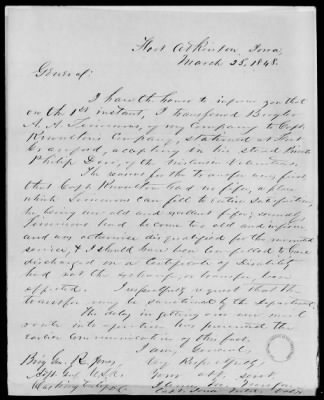 Fort Atkinson, Iowa,
March 25, 1848.
General:
I have the honor to inform you that
on the 1st instant, I transferred Bugler
A. A. of my Company to Capt.
Knowlton's Company, stationed at Fort
Crawford, accepting in his stead Private
Philip of the Volunteers.
The reasons for the transfer were, first
that Capt. Knowlton had no fifer, a place
which could fill to entire satisfaction,
he being an old and excellent fifer; secondly
had become too old and infirm
and was otherwise disqualified for the mounted
service, & I should have been compelled to have
discharged on a Certificate of Disability
had not the exchange, or transfer, been
effected. I respectfully request that the
transfer may be sanctioned by the Department.
The delay in getting our new mail
route into operation has prevented the
earlier communication of this fact.
I am, General,
Very Respectfully,
Your obt. servt.
Brig Gen. R. Jones,
Adjt. Genl. U.S.A.
Washington City, D.C.